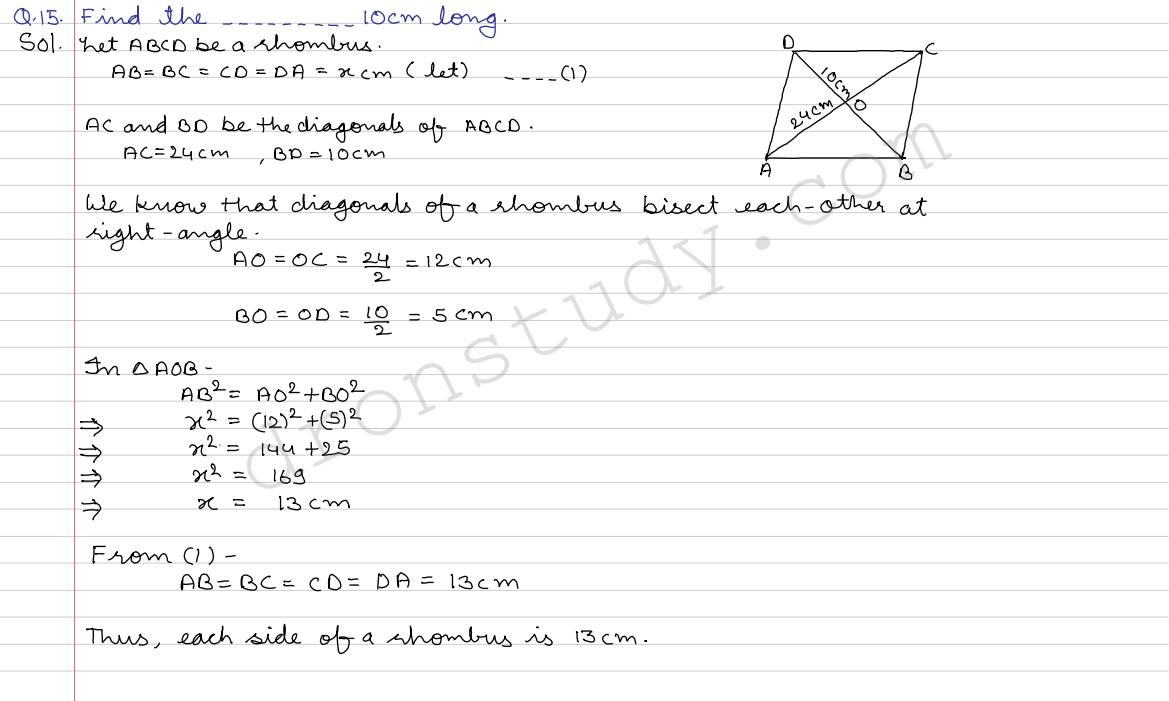 Q.15. Find the _ _ _ _ _ _ _ _ _ 10cm long.
Sol. Let ABCD be a rhombus.
AB = BC = CD = DA = x cm (let) _ _ _ _ (1)
AC and BD be the diagonals of ABCD.
AC = 24cm , BD = 10cm
We know that diagonals of a rhombus bisect each-other at
right-angle.
AO = OC = 24/2 = 12cm
BO = OD = 10/2 = 5 cm
In △AOB -
AB² = AO² + BO²
⇒ x² = (12)² + (5)²
⇒ x² = 144 + 25
⇒ x² = 169
⇒ x = 13 cm
From (1) -
AB = BC = CD = DA = 13cm
Thus, each side of a rhombus is 13cm.
D
C
10cm
O
24cm
A
B
dronstudy.com